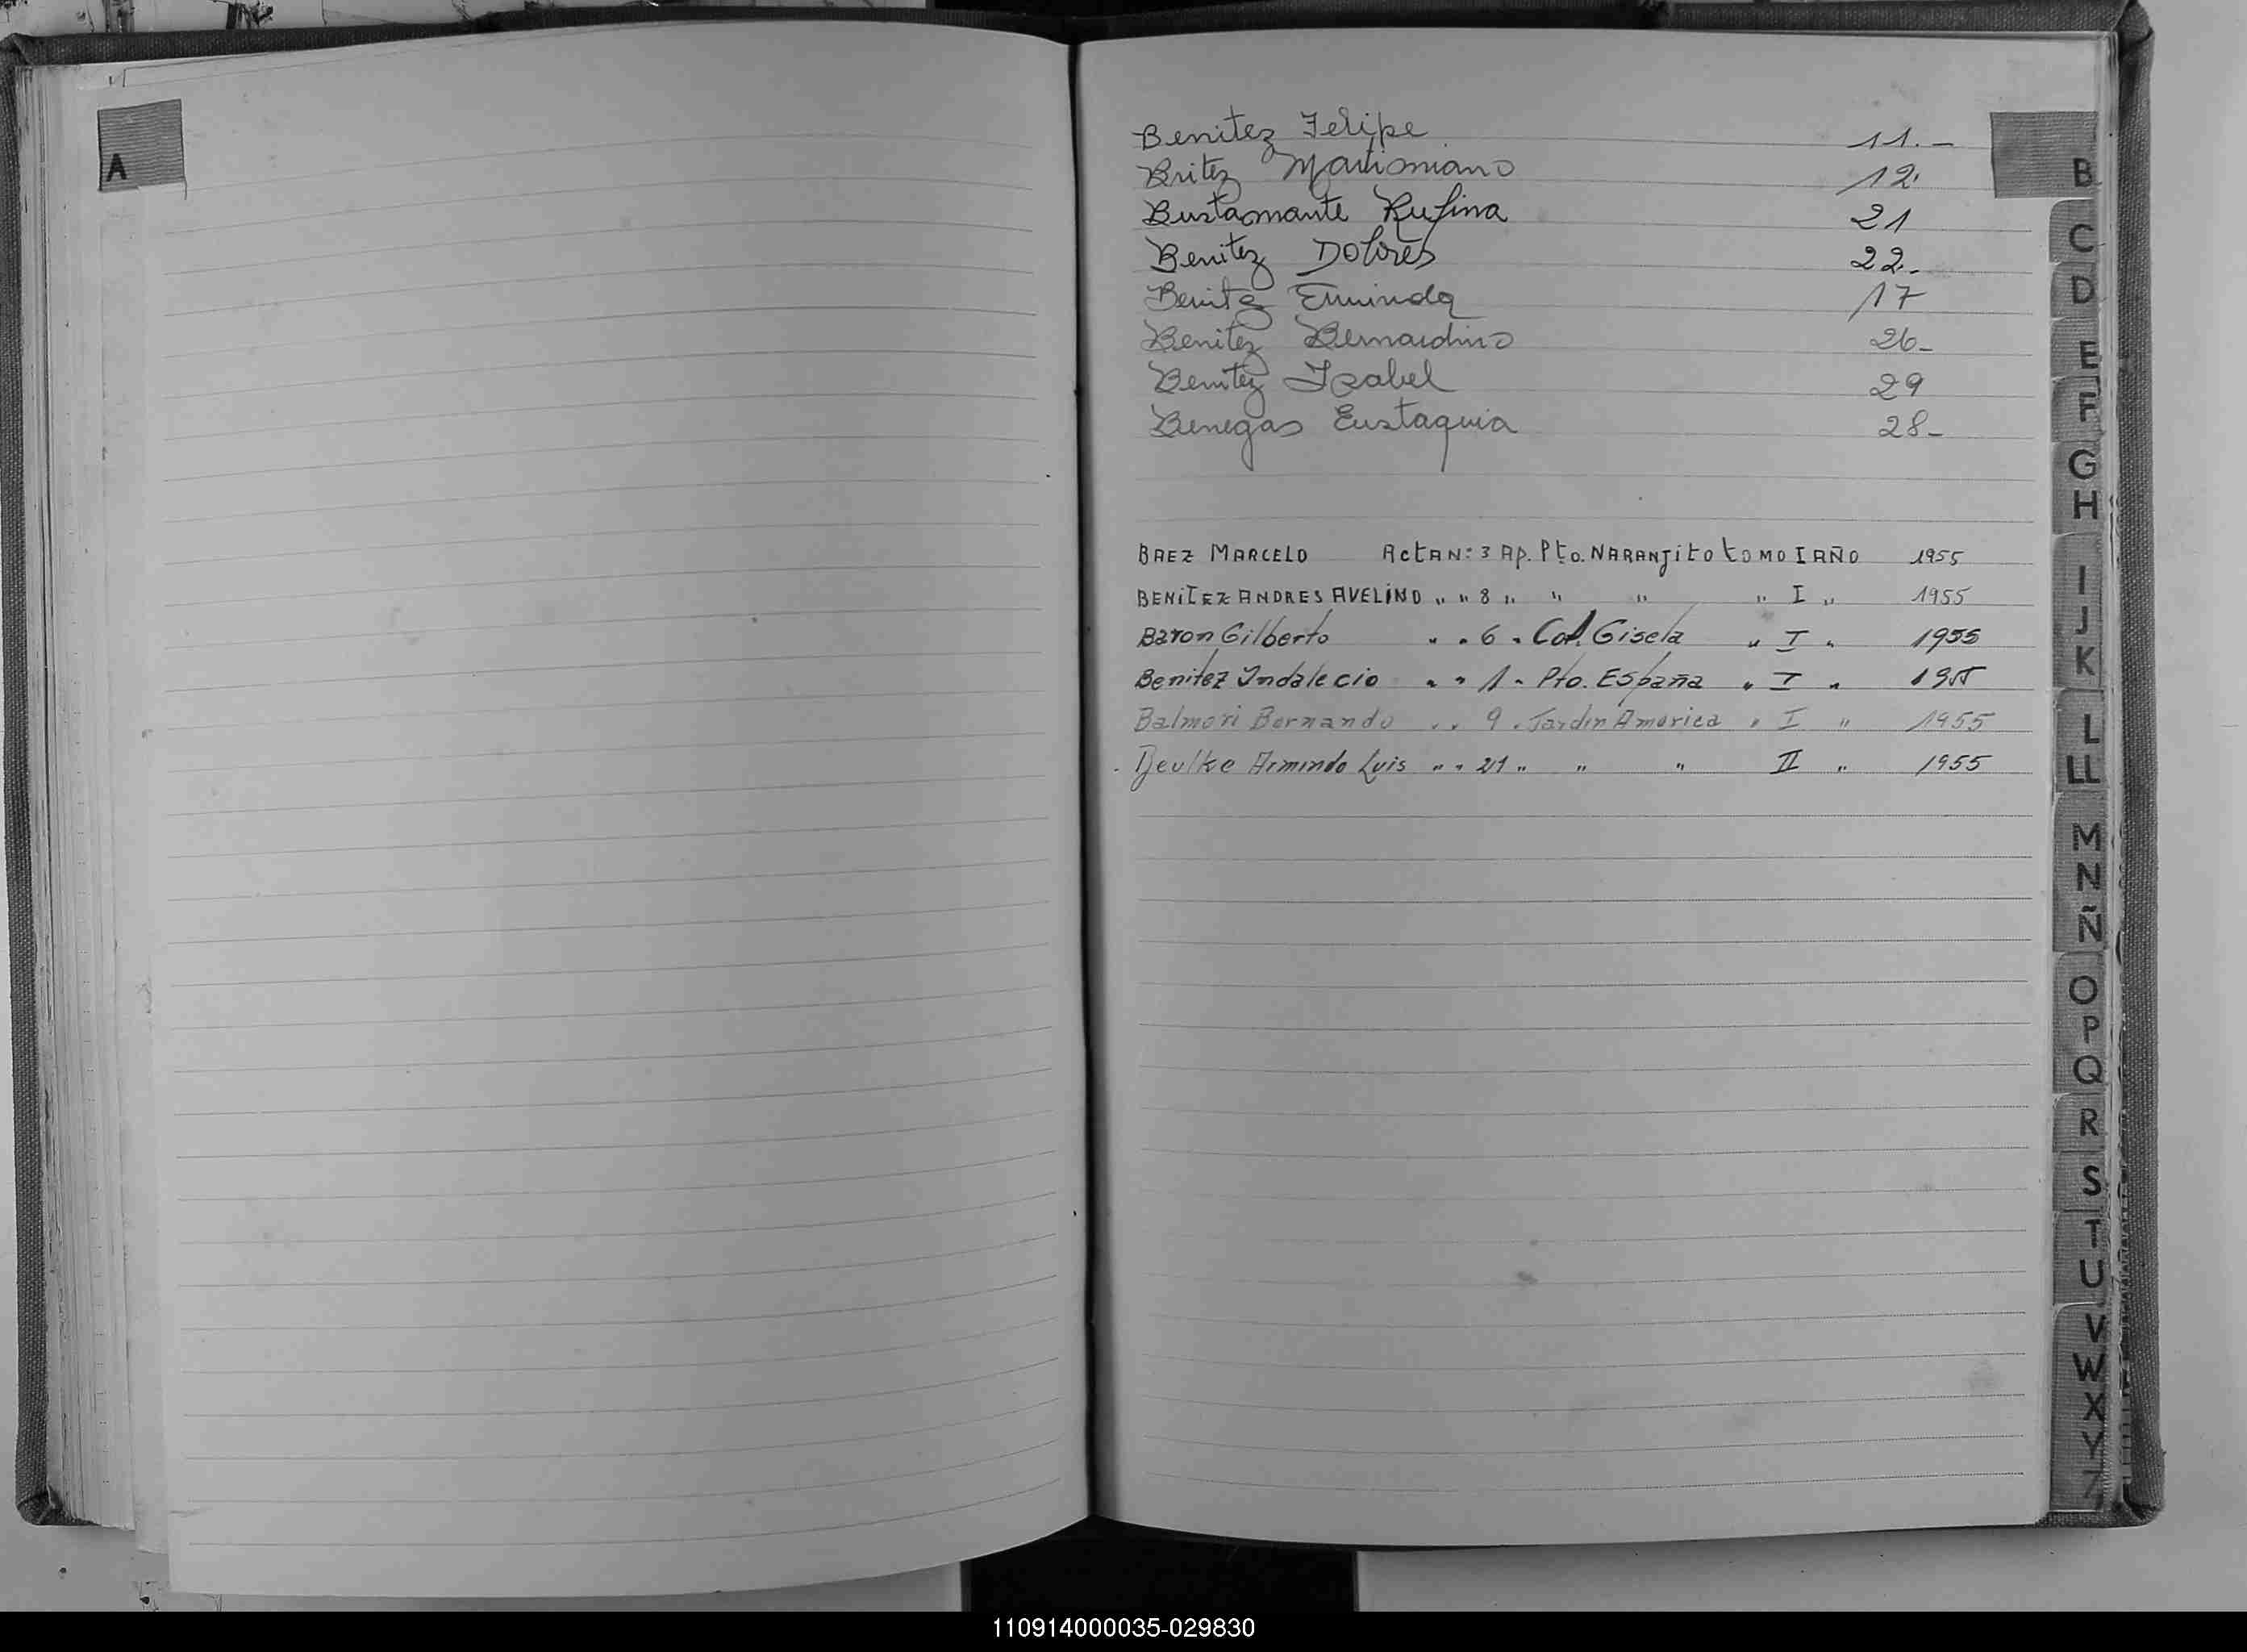 A
Benitez Felipe 11.-
Britez Martiniano 12.
Bustamante Rufina 21
Benitez Dolores 22.-
Benitez Erminda 17
Benitez Bernardino 26-
Benitez Isabel 29
Benegas Eustaquia 28-
BAEZ MARCELO ACTA N: 3 AP. Pto. NARANJITO TOMO I AÑO 1955
BENITEZ ANDRES AVELINO " " 8 " " " " I " 1955
Baron Gilberto " " 6 " Col. Gisela " I " 1955
Benitez Indalecio " " 1 " Pto. España " I " 1955
Balmori Bernando " " 9 " Jardin America " I " 1955
Beulke Armindo Luis " " 21 " " " II " 1955
B
C
D
E
F
G
H
I
J
K
L
LL
M
N
Ñ
O
P
Q
R
S
T
U
V
W
X
Y
Z
110914000035-029830